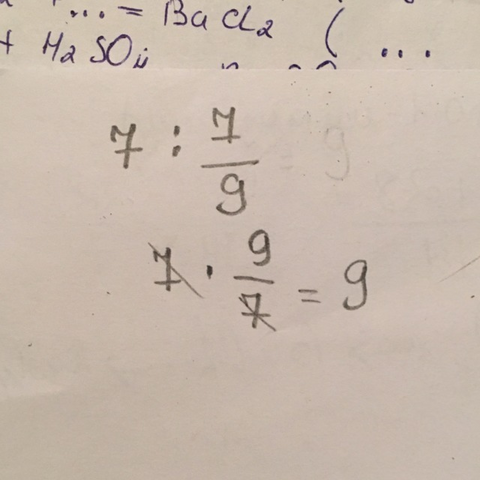 ... = BaCl2 ( ...
+ H2SO4
7 : 7/9
7 · 9/7 = 9